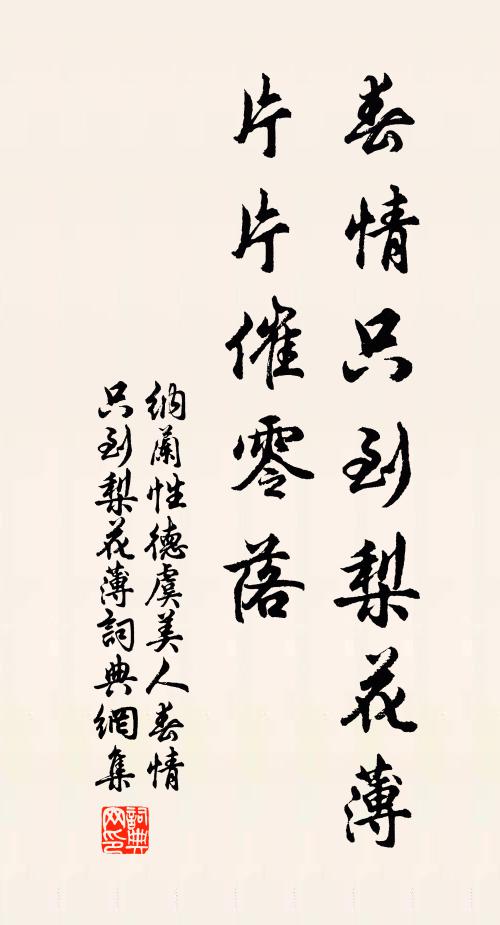 春情只到梨花薄
片片催零落
纳蘭性德虞美人春情
只到梨花薄詞典網集
詞典
网印